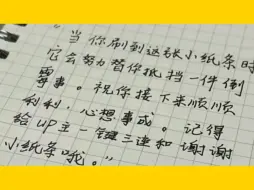 "当你刷到这张小纸条时
它会努力替你抵挡一件倒
霉事。祝你接下来顺顺
利利,心想事成。记得
给UP主一键三连和谢谢
小纸条哦。"